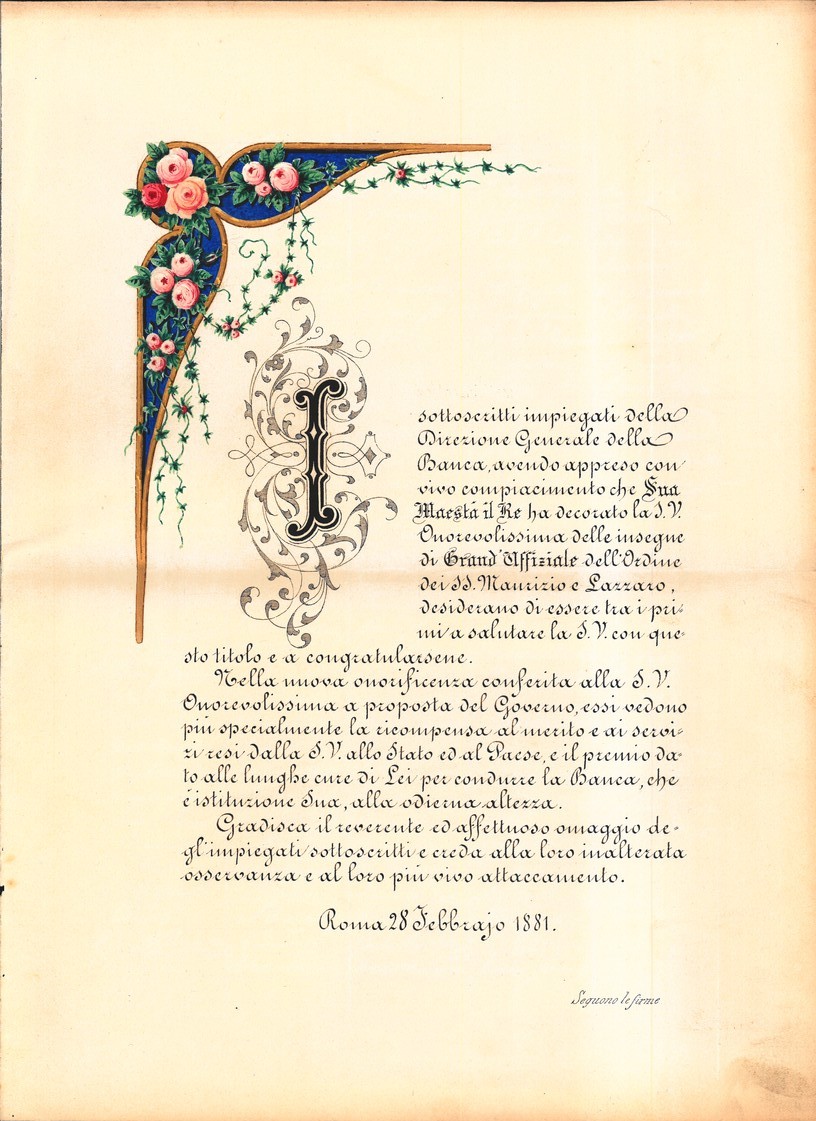 I sottoscritti impiegati della
Direzione Generale della
Banca, avendo appreso con
vivo compiacimento che Sua
Maestà il Re ha decorato la S.V.
Onorevolissima delle insegne
di Grand'Uffiziale dell'Ordine
dei SS. Maurizio e Lazzaro,
desiderano di essere tra i pri-
mi a salutare la S.V. con que-
sto titolo e a congratularsene.
Nella nuova onorificenza conferita alla S.V.
Onorevolissima a proposta del Governo, essi vedono
più specialmente la ricompensa al merito e ai servi-
zi resi dalla S.V. allo Stato ed al Paese, e il premio da-
to alle lunghe cure di Lei per condurre la Banca, che
è istituzione Sua, alla odierna altezza.
Gradisca il reverente ed affettuoso omaggio de-
gl'impiegati sottoscritti e creda alla loro inalterata
osservanza e al loro più vivo attaccamento.
Roma 28 Febbrajo 1881.
Seguono le firme